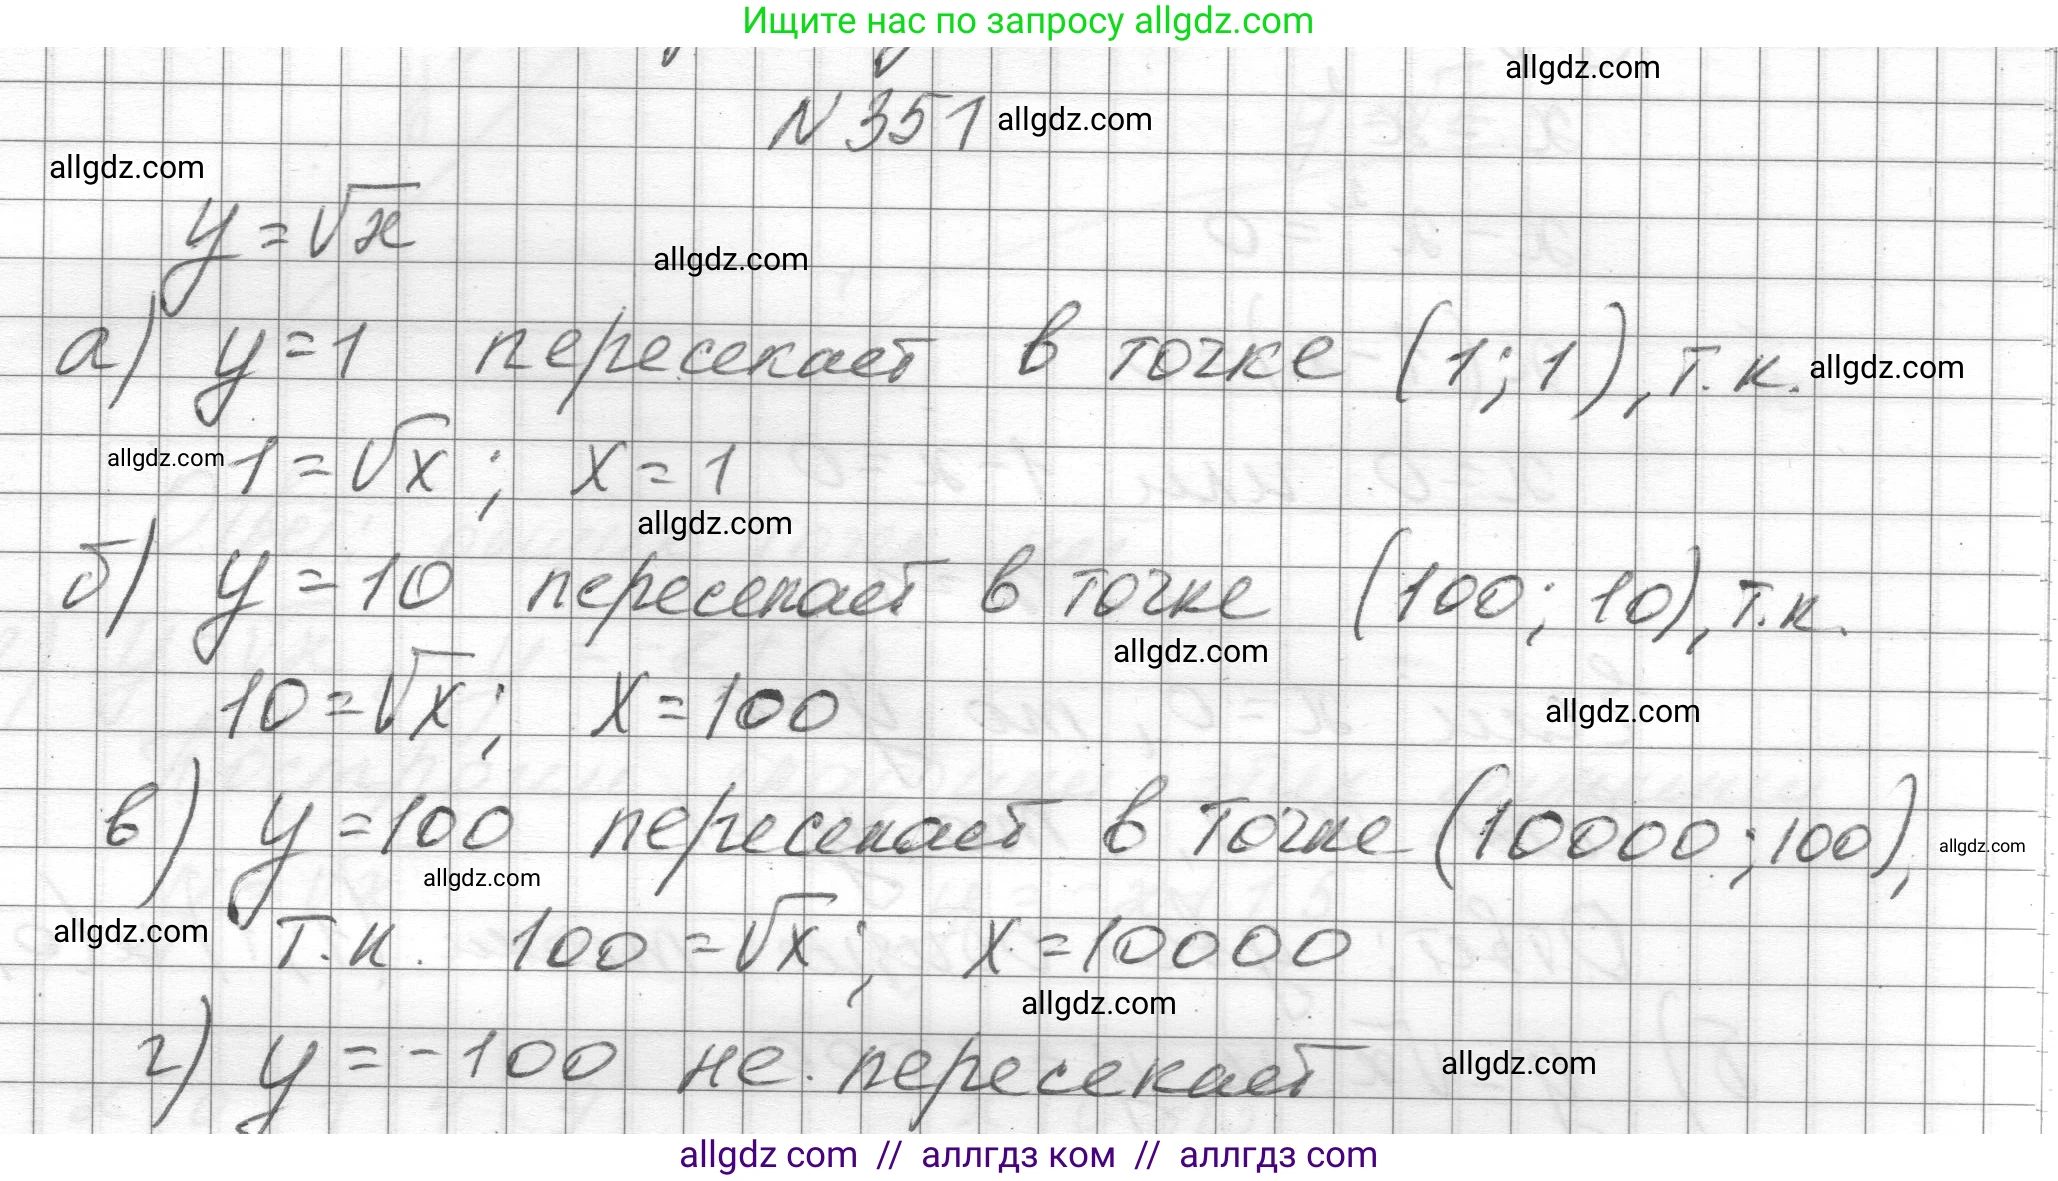 Ищите нас по запросу allgdz.com
allgdz.com
N 351 allgdz.com
allgdz.com
y = √x
allgdz.com
а) y = 1 пересекает в точке (1; 1), т.к. allgdz.com
allgdz.com 1 = √x; x = 1
allgdz.com
б) y = 10 пересекает в точке (100; 10), т.к.
allgdz.com
10 = √x; x = 100
allgdz.com
в) y = 100 пересекает в точке (10000; 100), allgdz.com
allgdz.com
allgdz.com т.к. 100 = √x; x = 10000
allgdz.com
г) y = -100 не пересекает allgdz.com
allgdz com // аллгдз ком // аллгдз com